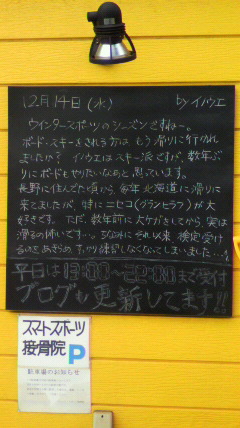 12月14日(水) by イノウエ
ウインタースポーツのシーズンですねー。
ボード・スキーをされる方は もう滑りに行かれ
ましたか? イノウエはスキー派ですが、数年ぶ
りにボードもやりたいなぁと思っています。
長野に住んでた頃から、毎年北海道に滑りに
来てましたが、特に ニセコ(グランヒラフ)が大
好きです。ただ、数年前に大ケガをしてから、実は
滑るの怖いです…。ちなみに それ以来 検定受け
るのをあきらめ、すっかり練習しなくなってしまいました…。
平日は13:00~22:00まで受付
ブログも更新してます!!
スマートスポーツ
接骨院 P
駐車場のお知らせ